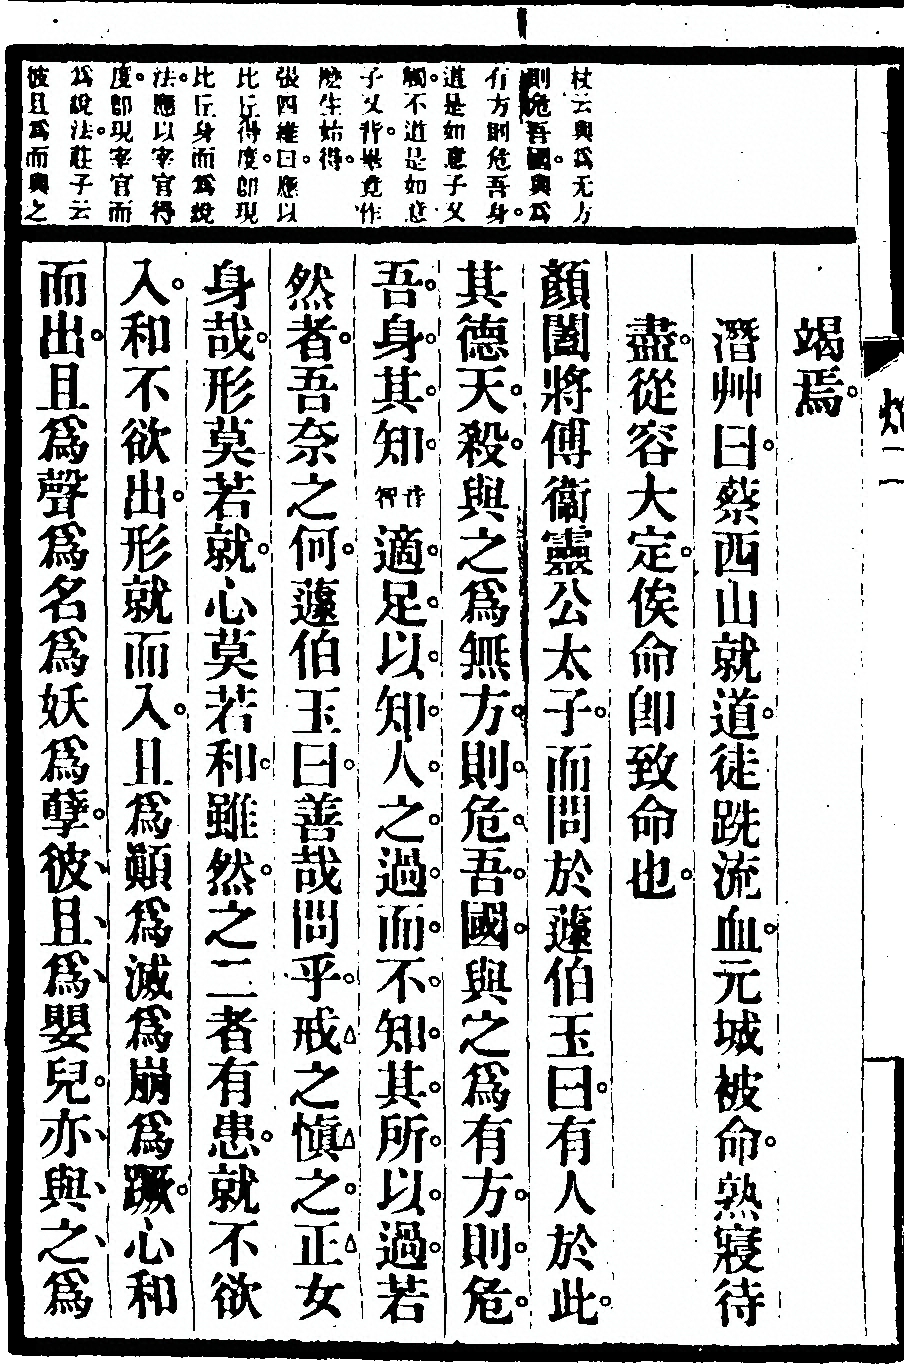 杖云與爲无方
則危吾國。與爲
有方則危吾身。
道是如意子又
觸。不道是如意
子又背。畢竟作
麽生始得。
張四維曰。應以
比丘得度。卽現
比丘身而爲說
法。應以宰官得
度。卽現宰官而
爲說法。莊子云
彼且爲而與之
竭焉。
潛艸曰。蔡西山就道。徒跣流血。元城被命。熟寢待
盡。從容大定。俟命卽致命也。
顏闔將傅衞靈公太子。而問於蘧伯玉曰。有人於此。
其德天。殺。與之爲無方。則。危。吾。國。與之爲有方。則。危。
吾。身。其。知。音智適。足。以。知。人。之。過。而。不。知。其。所。以。過。若
然者。吾奈之何。蘧伯玉曰。善哉問乎。戒之愼之。正女
身哉。形莫若就。心莫若和。雖然。之二者有患。就不欲
入。和不欲出。形就而入。且爲顚爲滅爲崩爲蹶。心和
而出。且爲聲爲名爲妖爲孽。彼、且、爲、嬰兒。亦、與、之、爲